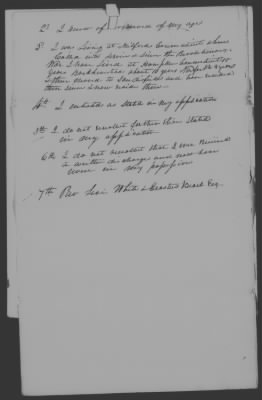 2d I know of no record of my age
3d I was living at Milford Connecticut when
Called into service & since the Revolutionary
War I have lived at
years
then moved to Sandisfield and have resided
there since & now reside there.
4th I enlisted as stated in my application
5th I do not recollect further than stated
in my application
6th I do not recollect that I ever received
a written discharge and now have
none in my possession
7th Rev Levi White & Erastus Beach Esq